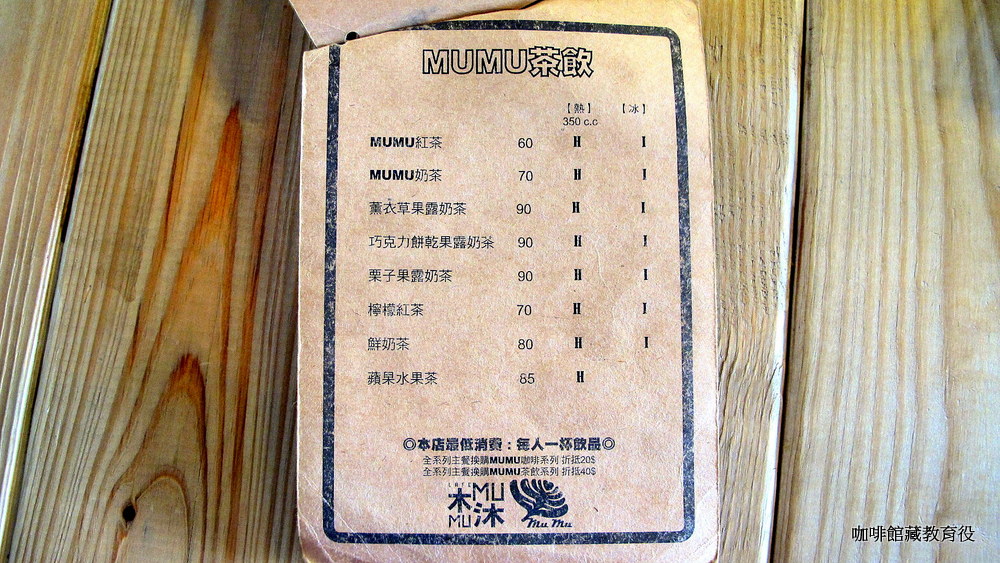 MUMU茶飲
【熱】 【冰】
350 c.c
MUMU紅茶 60 H I
MUMU奶茶 70 H I
薰衣草果露奶茶 90 H I
巧克力餅乾果露奶茶 90 H I
栗子果露奶茶 90 H I
檸檬紅茶 70 H I
鮮奶茶 80 H I
蘋果水果茶 85 H
◎本店最低消費：每人一杯飲品◎
全系列主餐換購MUMU咖啡系列 折抵20$
全系列主餐換購MUMU茶飲系列 折抵40$
CAFE MU
木沐
MU
Mu Mu
咖啡館藏教育役